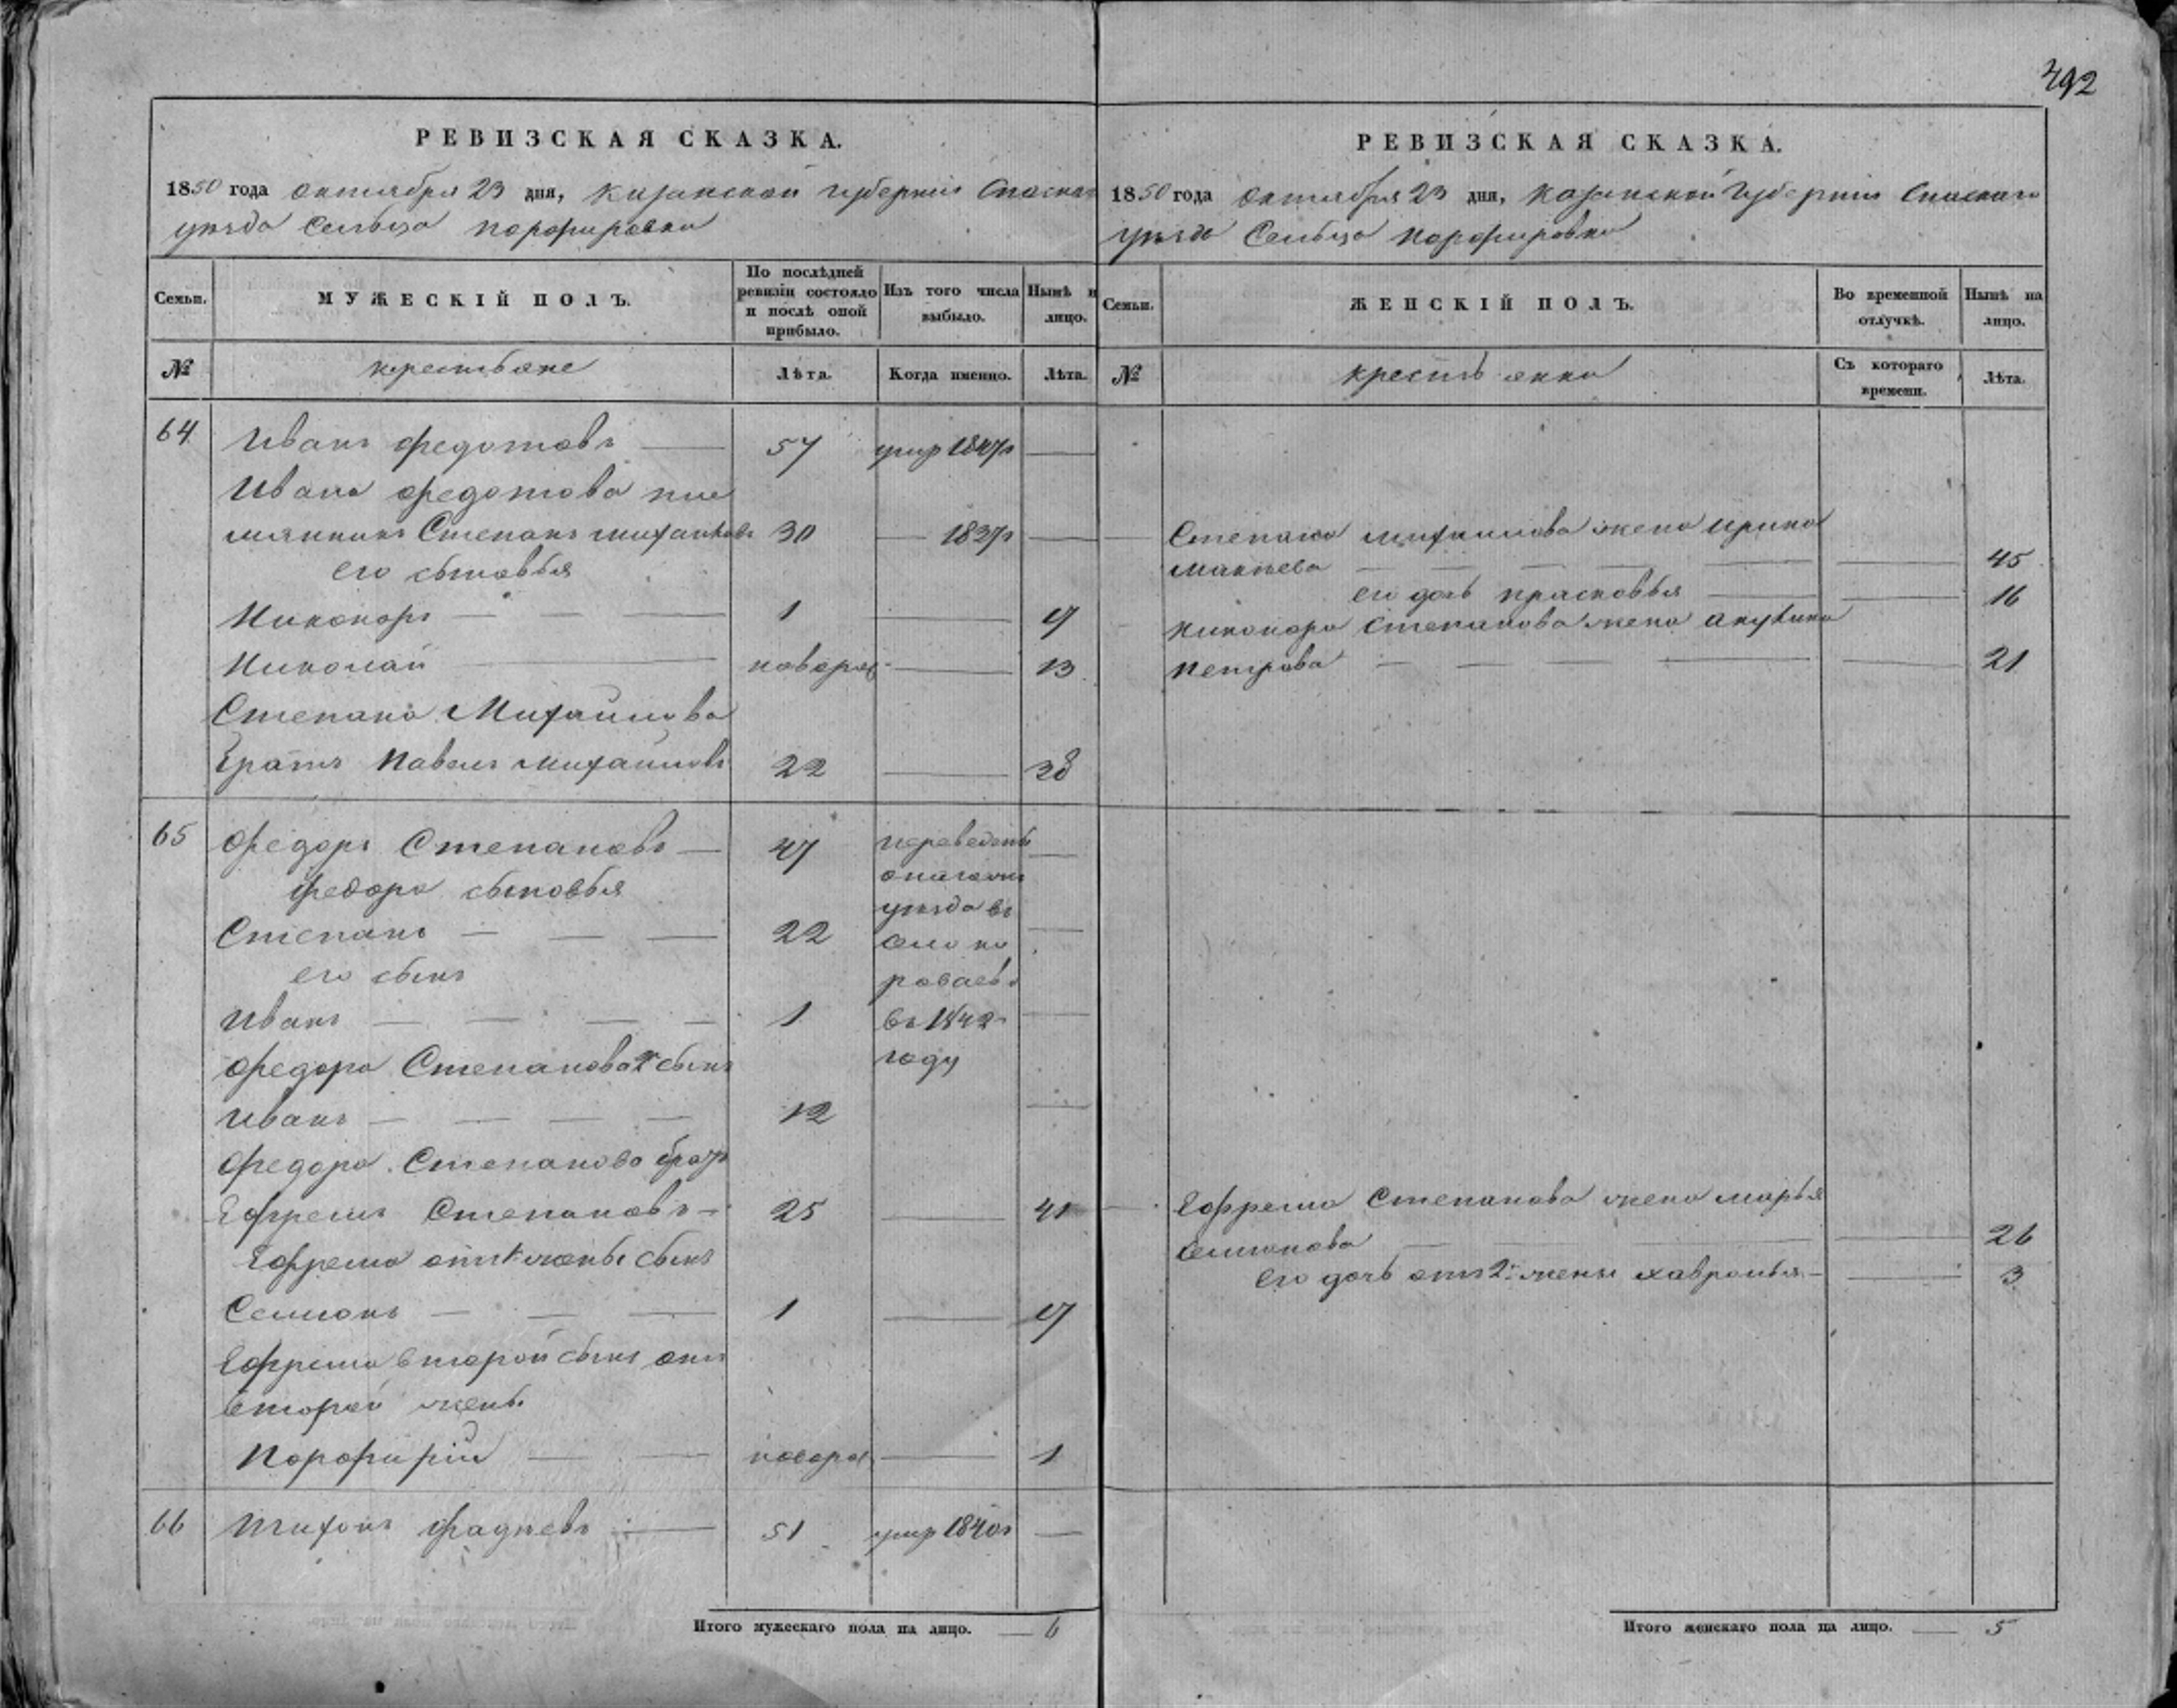 492
РЕВИЗСКАЯ СКАЗКА.
1850 года октября 23 дня, казанской губернии Спаскаго
уезда Сельца порфировки
Семьи. МУЖЕСКІЙ ПОЛЪ. По послѣдней ревизіи состояло и послѣ оной прибыло. Изъ того числа выбыло. Нынѣ на лицо.
№ крестьяне Лѣта. Когда именно. Лѣта.
64 Иванъ федотовъ 57 умир 1847г
Ивана федотова пле
мянникъ Степанъ михаиловъ 30 1837г
его сыновья
Никоноръ 1 17
Николай новорож 13
Степана Михаилова
братъ Павелъ михаиловъ 22 38
65 федоръ Степановъ 47 переведены
федора сыновья
Степанъ 22 уезда въ село
его сынъ
Иванъ 1 въ 1842
федора Степанова 2й сынъ году
Иванъ 12
федора Степанова братъ
Ефремъ Степановъ 25 41
Ефрема отъ 1 жены сынъ
Семионъ 1 17
Ефрема второй сынъ отъ
второй жены
Порфирий новорож 1
66 Тихонъ фадеевъ 51 умир 1840г
Итого мужескаго пола на лицо. 6
РЕВИЗСКАЯ СКАЗКА.
1850 года октября 23 дня, казанской губернии Спаскаго
уезда Сельца порфировки
Семьи. ЖЕНСКІЙ ПОЛЪ. Во временной отлучкѣ. Нынѣ на лицо.
№ крестьянки Съ котораго времени. Лѣта.
Степана михаилова жена ирина
макеева 45
его дочь прасковья 16
никонора степанова жена акулина
петрова 21
Ефрема Степанова жена марья
семионова 26
его дочь отъ 2й жены хавронья 3
Итого женскаго пола на лицо. 5